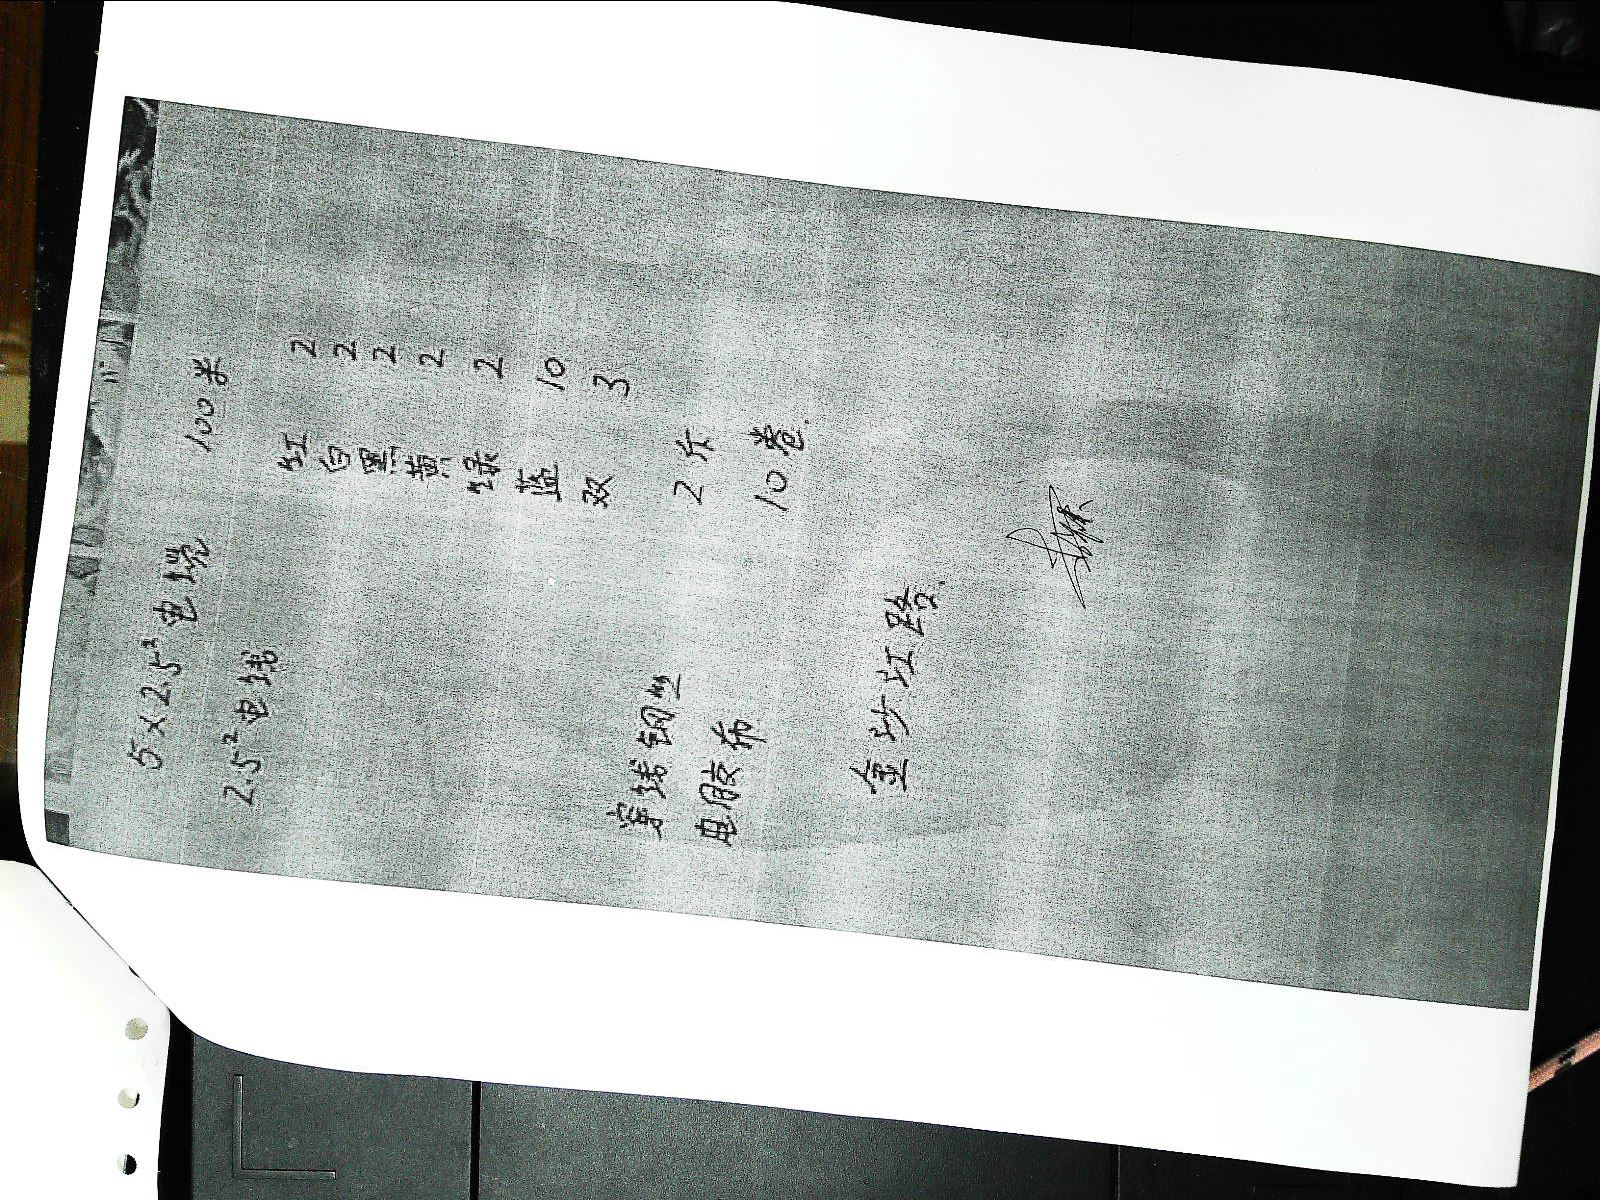 5×2.5² 电缆 100米
2.5² 电线 红 2
白 2
黑 2
黄 2
绿 2
蓝 10
双 3
穿线钢丝 2斤
电胶布 10卷.
金沙江路.